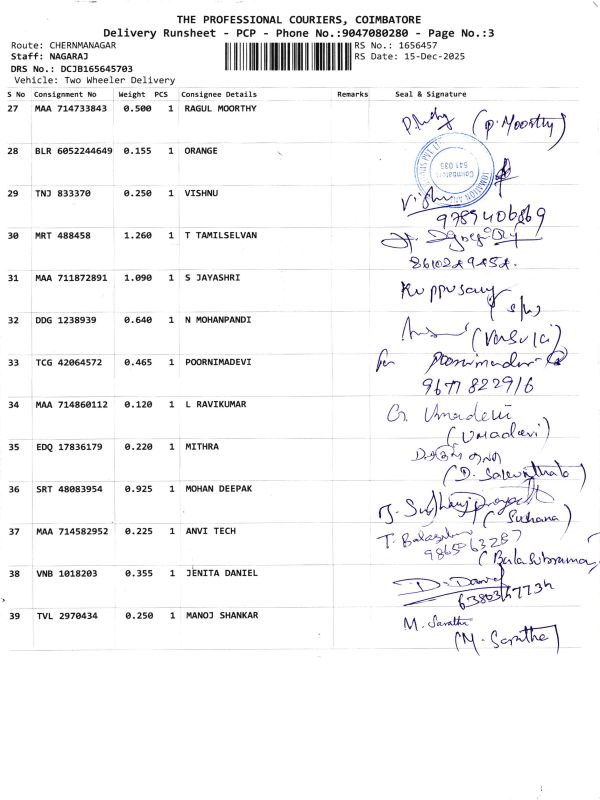 THE PROFESSIONAL COURIERS, COIMBATORE
Delivery Runsheet - PCP - Phone No.:9047080280 - Page No.:3
Route: CHERNMANAGAR RS No.: 1656457
Staff: NAGARAJ RS Date: 15-Dec-2025
DRS No.: DCJB165645703
Vehicle: Two Wheeler Delivery
S No Consignment No Weight PCS Consignee Details Remarks Seal & Signature
27 MAA 714733843 0.500 1 RAGUL MOORTHY (P. Moorthy)
28 BLR 6052244649 0.155 1 ORANGE
Coimbatore
641 035
29 TNJ 833370 0.250 1 VISHNU Vishnu
9789406869
30 MRT 488458 1.260 1 T TAMILSELVAN
31 MAA 711872891 1.090 1 S JAYASHRI Kuppusamy
32 DDG 1238939 0.640 1 N MOHANPANDI
33 TCG 42064572 0.465 1 POORNIMADEVI for Poornimadevi
9677822916
34 MAA 714860112 0.120 1 L RAVIKUMAR G. Umadevi
(Umadevi)
35 EDQ 17836179 0.220 1 MITHRA
36 SRT 48083954 0.925 1 MOHAN DEEPAK
(Suhana)
37 MAA 714582952 0.225 1 ANVI TECH T. Balasubra
9865063287
(Balasubrama
38 VNB 1018203 0.355 1 JENITA DANIEL D. Daniel
39 TVL 2970434 0.250 1 MANOJ SHANKAR M. Saratha
(M. Saratha)